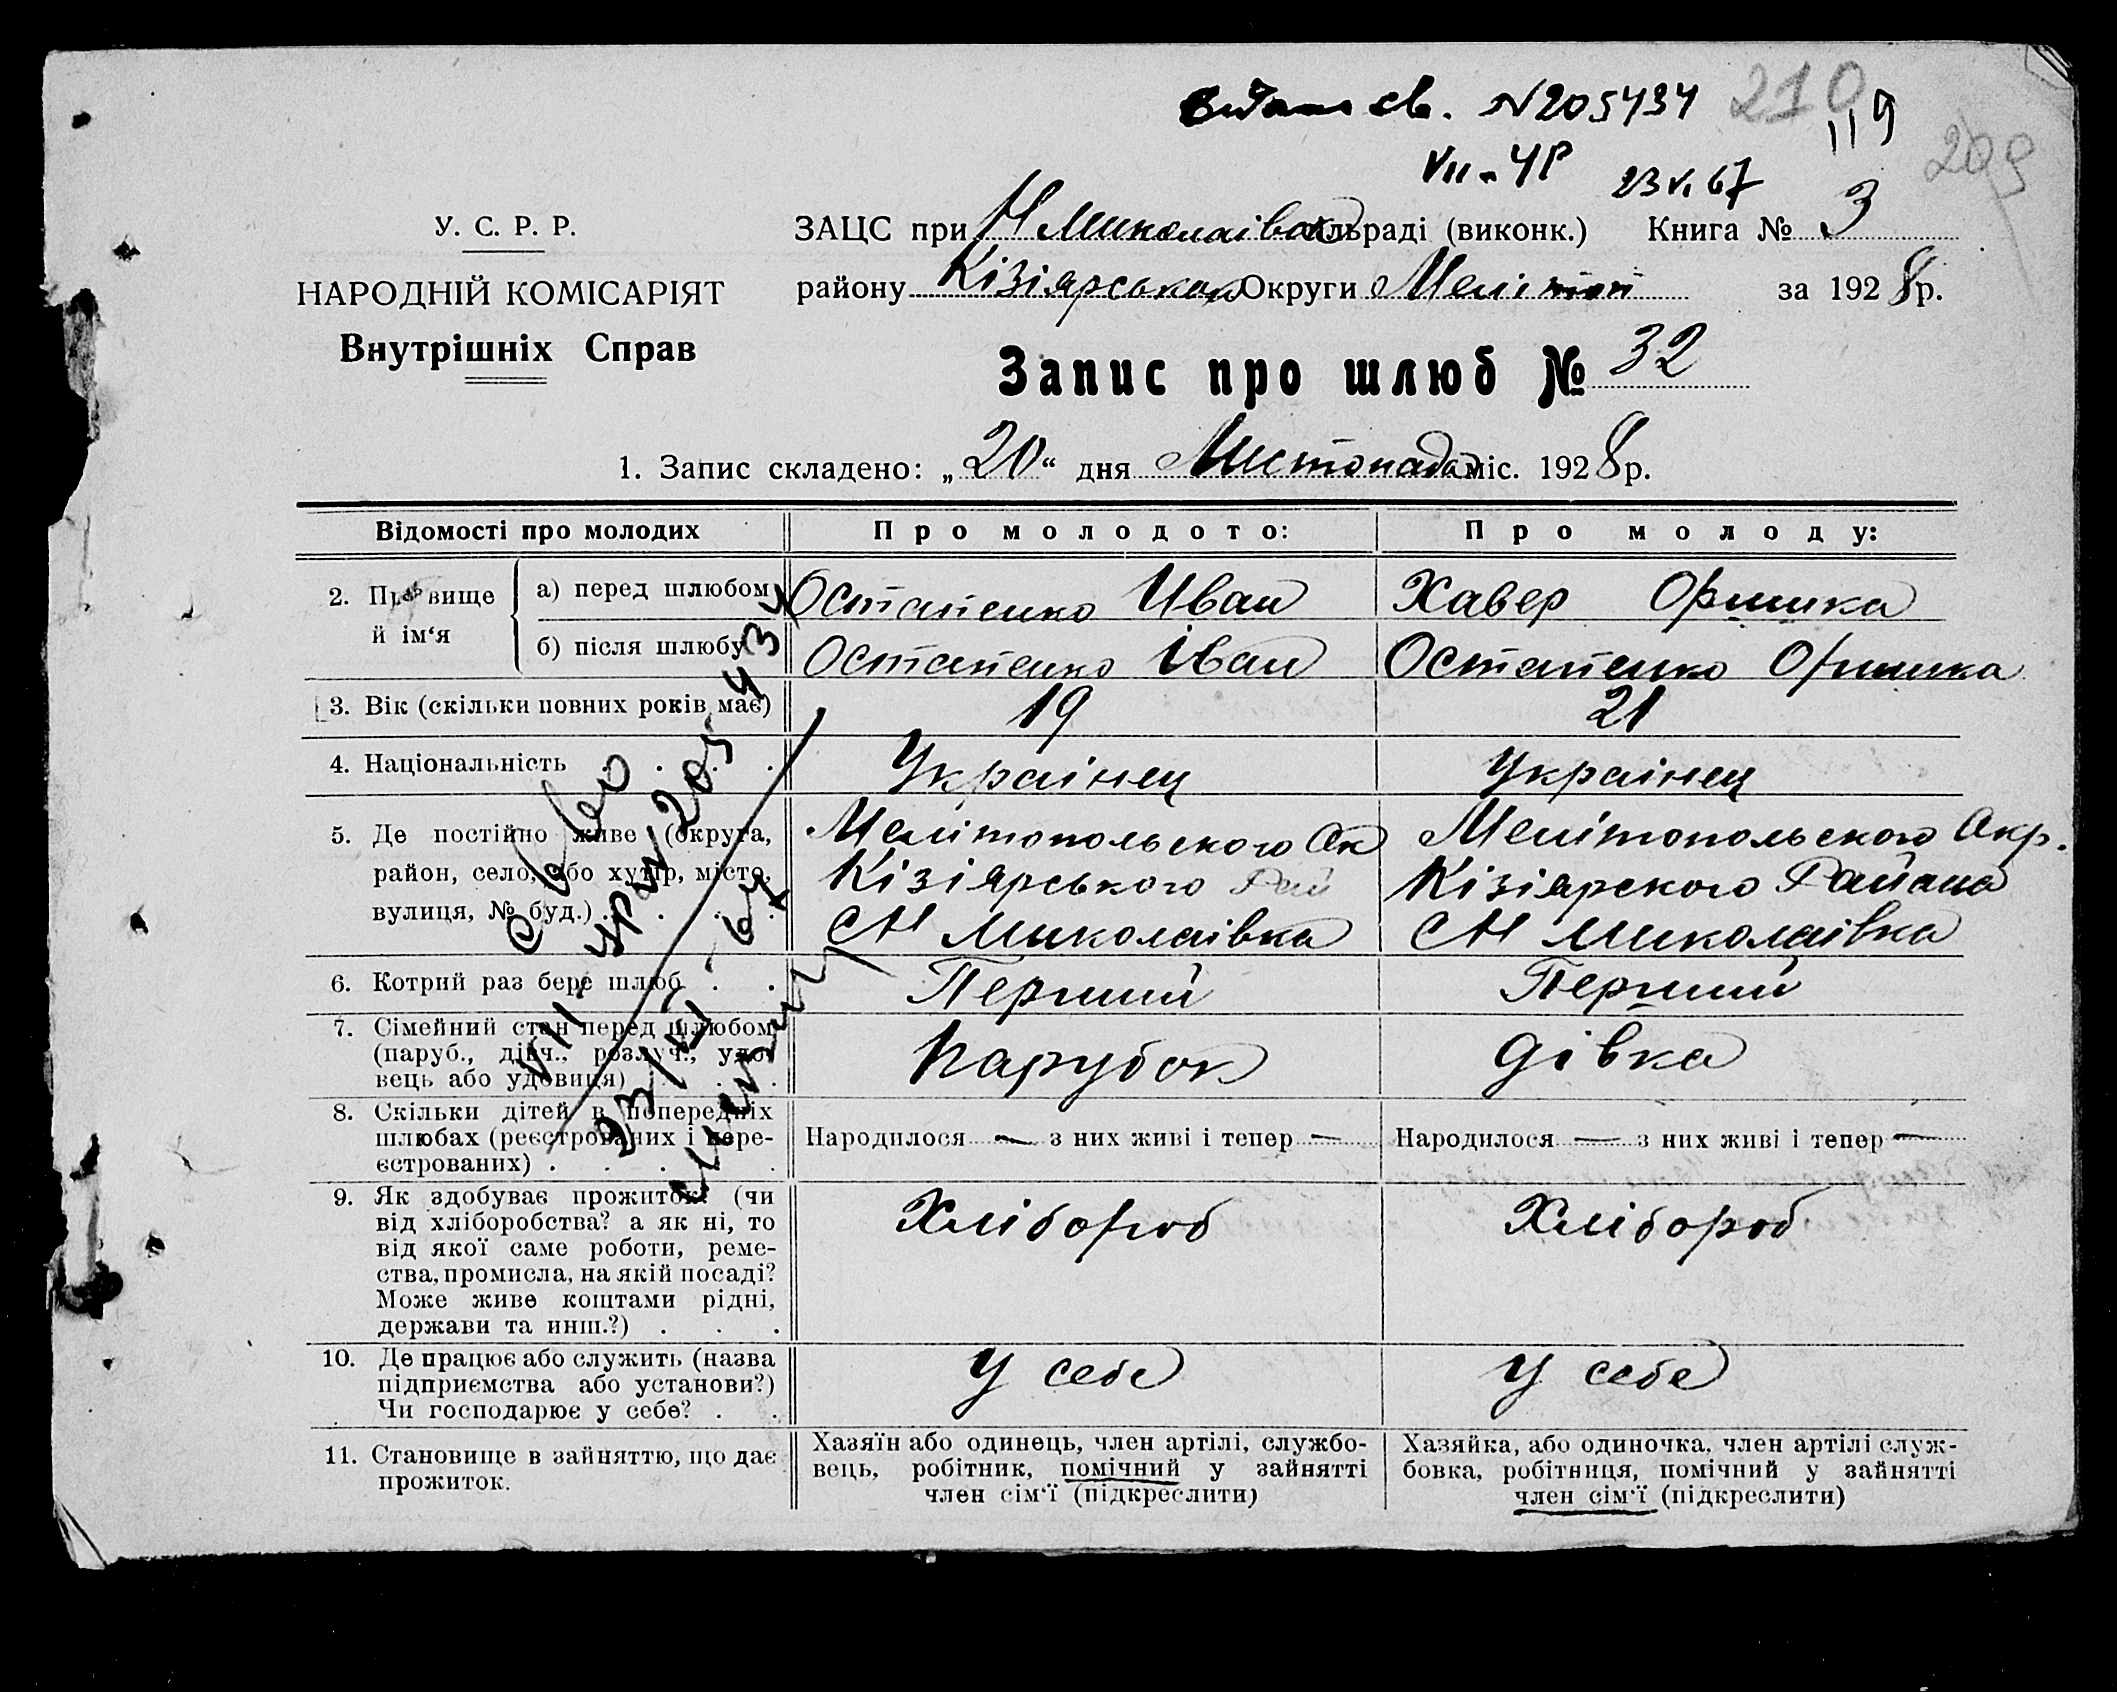 Видано св. N205434
210
119
VII-УР 23 VI 67
209
У. С. Р. Р.
ЗАЦС при Н Миколаівск сільраді (виконк.) Книга № 3
НАРОДНІЙ КОМІСАРІЯТ
району Кізіярськом Округи Мелітоп за 1928 р.
Внутрішніх Справ
Запис про шлюб № 32
1. Запис складено: „20“ дня Листопада міс. 1928 р.
Відомості про молодих Про молодого: Про молоду:
2. Прізвище й ім‘я
а) перед шлюбом Остапенко Иван Хавер Оришка
б) після шлюбу Остапенко Іван Остапенко Оришка
3. Вік (скільки повних років має) 19 21
4. Національність . . . Украінец Украінец
5. Де постійно живе (округа, Мелітопольского Ок Мелітопольского Окр.
район, село, або хутір, місто, Кізіярського Рай Кізіярского Района
вулиця, № буд.) . . . . СН Миколаівка СН Миколаівка
6. Котрий раз бере шлюб . . Перший Перший
7. Сімейний стан перед шлюбом
(паруб., дівч., розлуч., удо- Парубок Дівка
вець або удовиця) . . .
8. Скільки дітей в попередніх
шлюбах (реєстрованих і нере- Народилося — з них живі і тепер — Народилося — з них живі і тепер —
єстрованих) . . . .
9. Як здобуває прожиток? (чи Хлібороб Хлібороб
від хліборобства? а як ні, то
від якої саме роботи, реме-
ства, промисла, на якій посаді?
Може живе коштами рідні,
держави та инш.?) . . .
10. Де працює або служить (назва У себе У себе
підприємства або установи?)
Чи господарює у себе? . .
11. Становище в зайняттю, що дає
прожиток.
Хазяїн або одинець, член артілі, службо-
вець, робітник, помічний у зайнятті
член сім‘ї (підкреслити)
Хазяйка, або одиночка, член артілі служ-
бовка, робітниця, помічний у зайнятті
член сім‘ї (підкреслити)
с-во
VII УР N 205434
23/VI-67